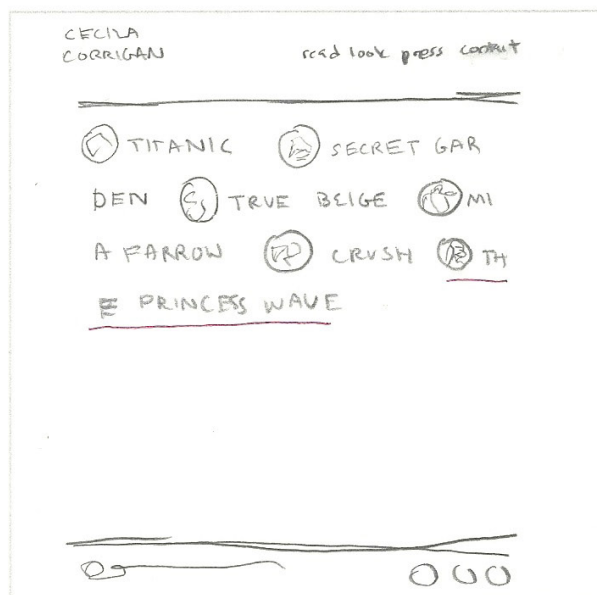 CECILIA
CORRIGAN
read look press contact
TITANIC SECRET GAR
DEN TRUE BEIGE MI
A FARROW CRUSH TH
E PRINCESS WAVE